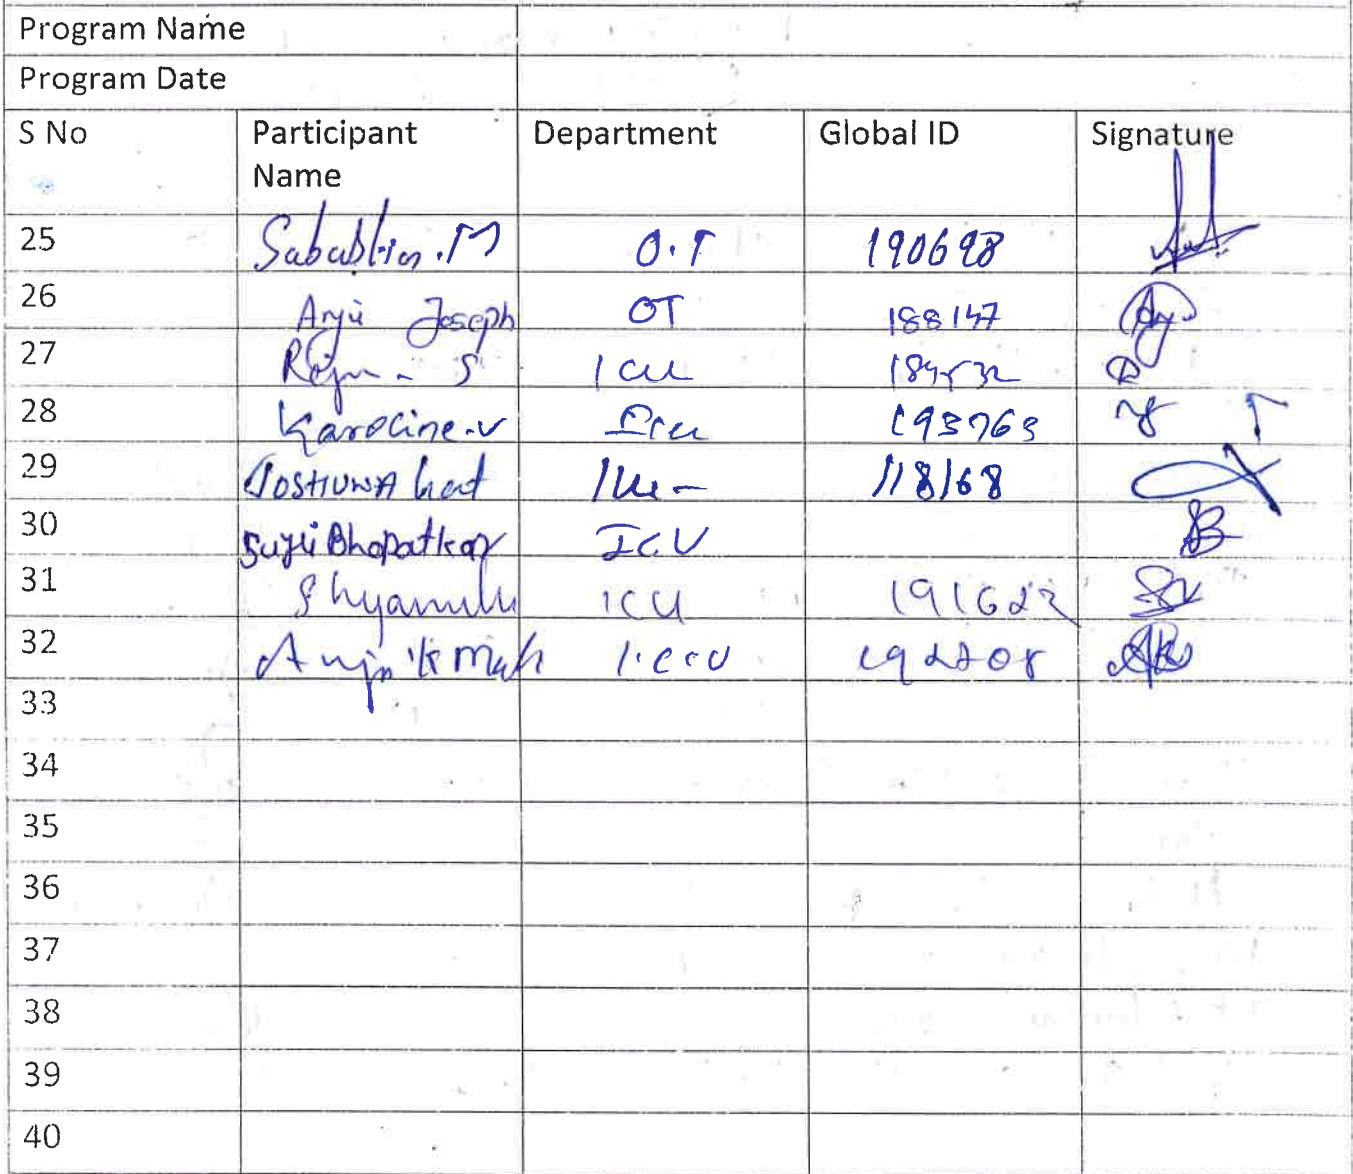 Program Name
Program Date
S No Participant Name Department Global ID Signature
25 O.T 190698
26 Anju Joseph OT 188147
27 S ICU
28 Karoline.v Icu 193763
29 JOSHUWA 118168
30 Suju Bhopatkar ICU
31 Shyamili ICU 191622
32 I.CCU
33
34
35
36
37
38
39
40